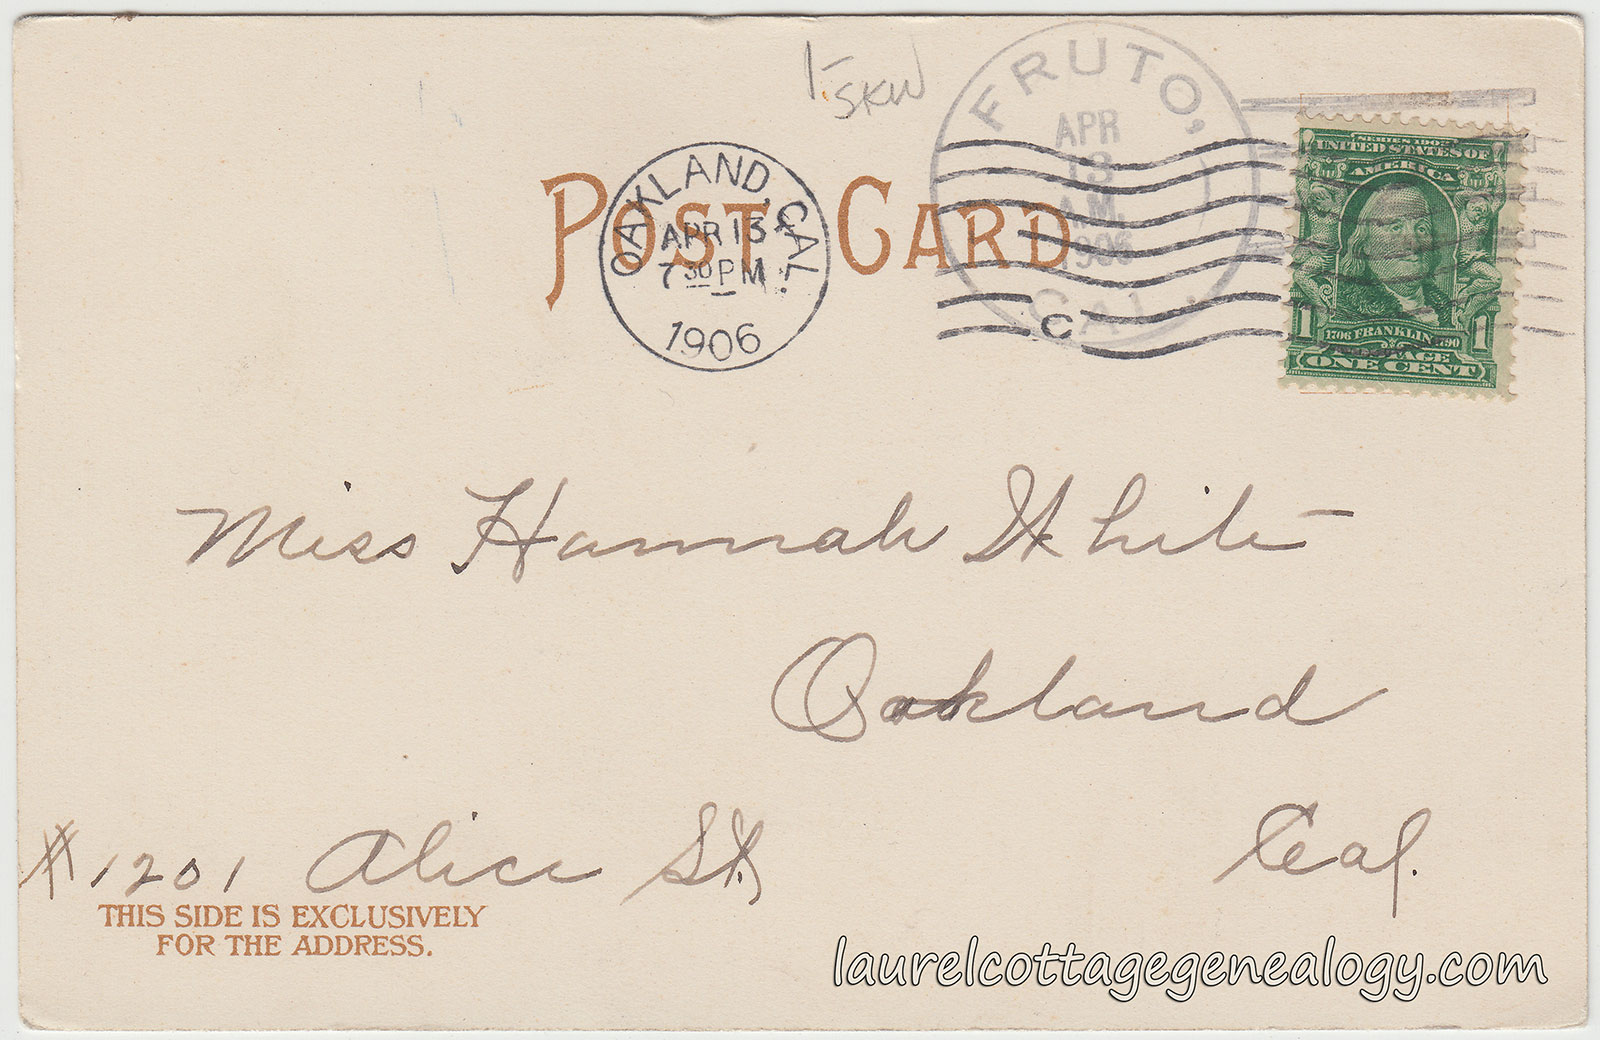 1- SKW
FRUTO,
APR
13
A.M.
1906
CAL.
OAKLAND, CAL.
APR 13
7 30 PM
1906
C
POST CARD
SERIES 1902
UNITED STATES OF
AMERICA
1706 FRANKLIN 1790
POSTAGE
1 1
ONE CENT
Miss Hannah White
Oakland
# 1201 Alice St,
Cal.
THIS SIDE IS EXCLUSIVELY
FOR THE ADDRESS.
laurelcottagegenealogy.com